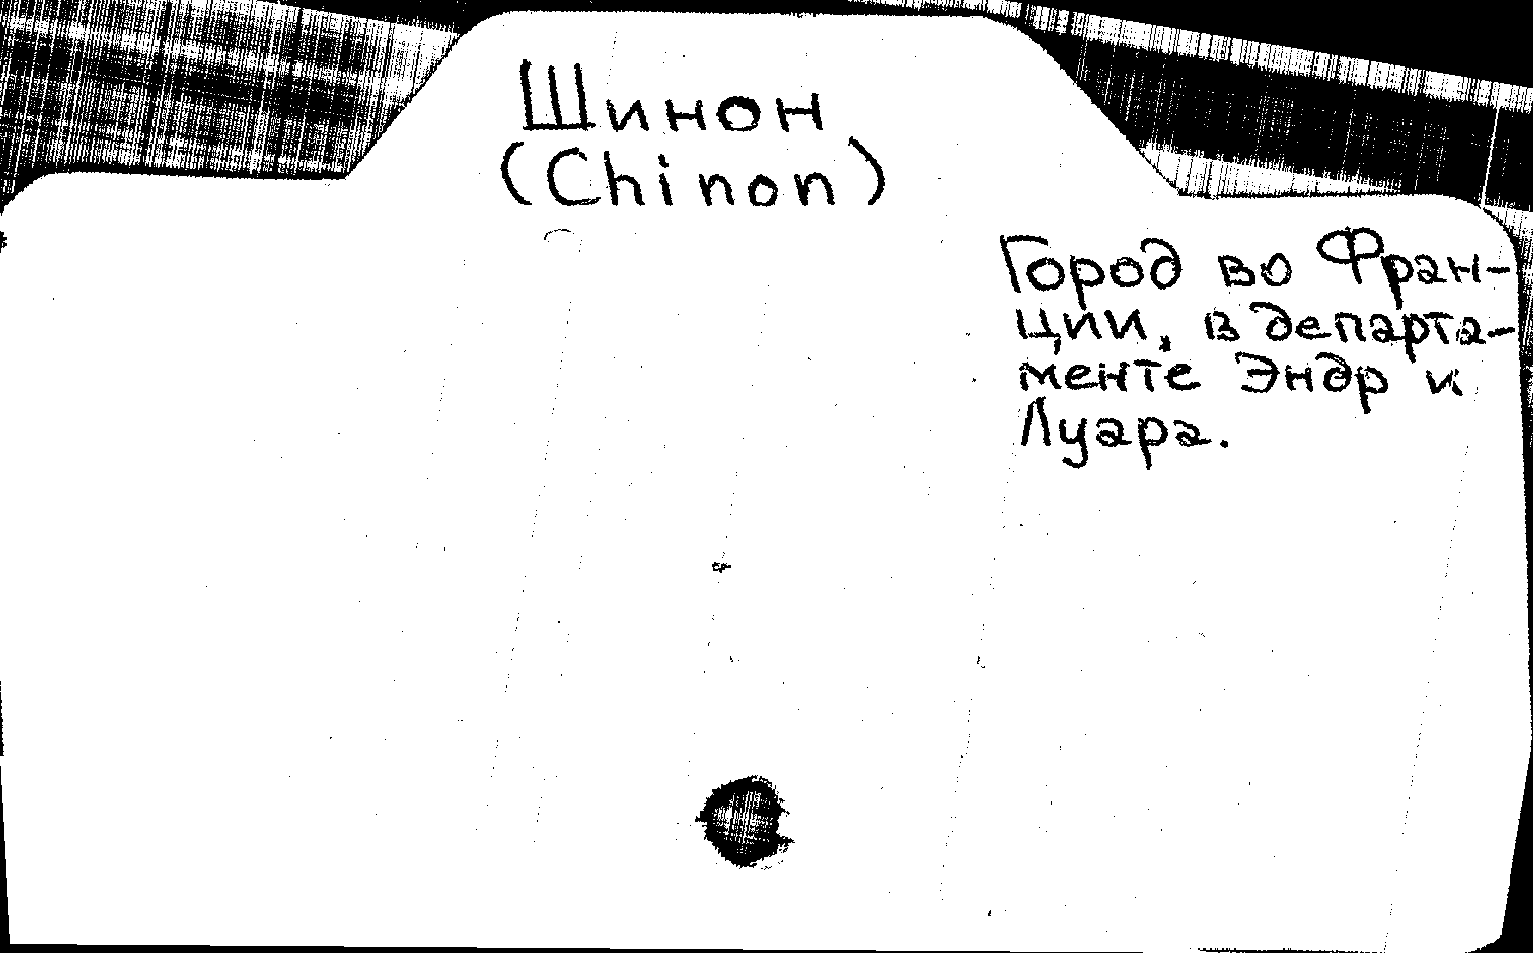 Шинон
(Chinon)
Город во Фран-
ции, в департа-
менте Эндр и
Луара.